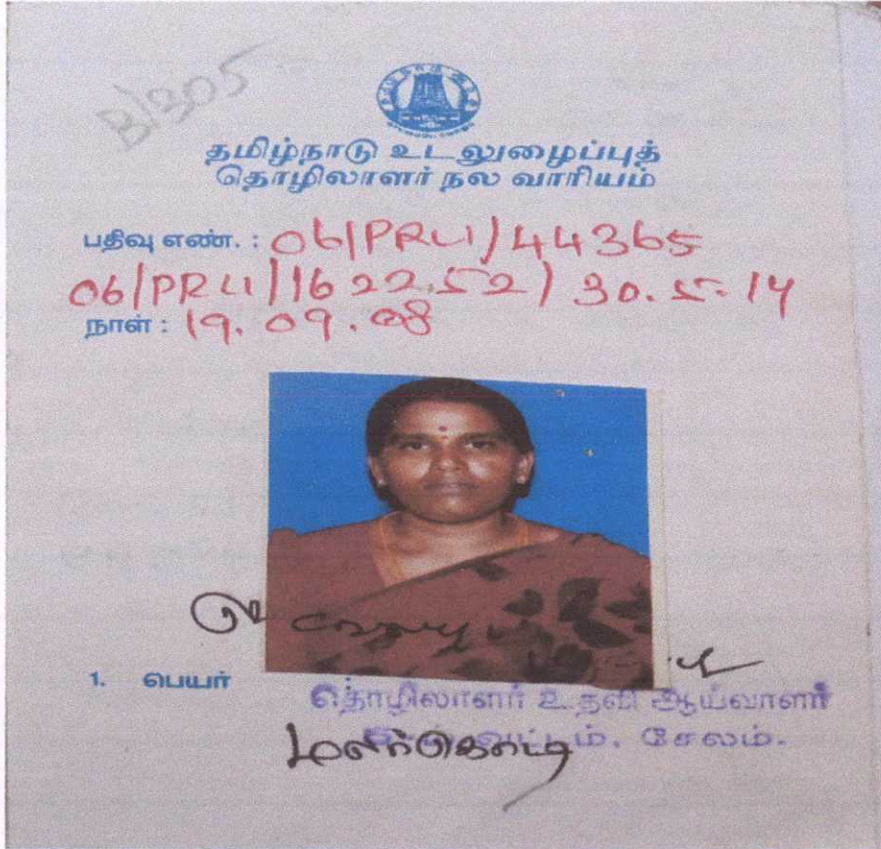 B/305
தமிழ்நாடு உடலுழைப்புத்
தொழிலாளர் நல வாரியம்
பதிவு எண். : 06/PRU/44365
06/PRU/162252/ 30.5.14
நாள் : 19.09.08
1. பெயர்
தொழிலாளர் உதவி ஆய்வாளர்
வட்டம். சேலம்.
மலர்கொடி